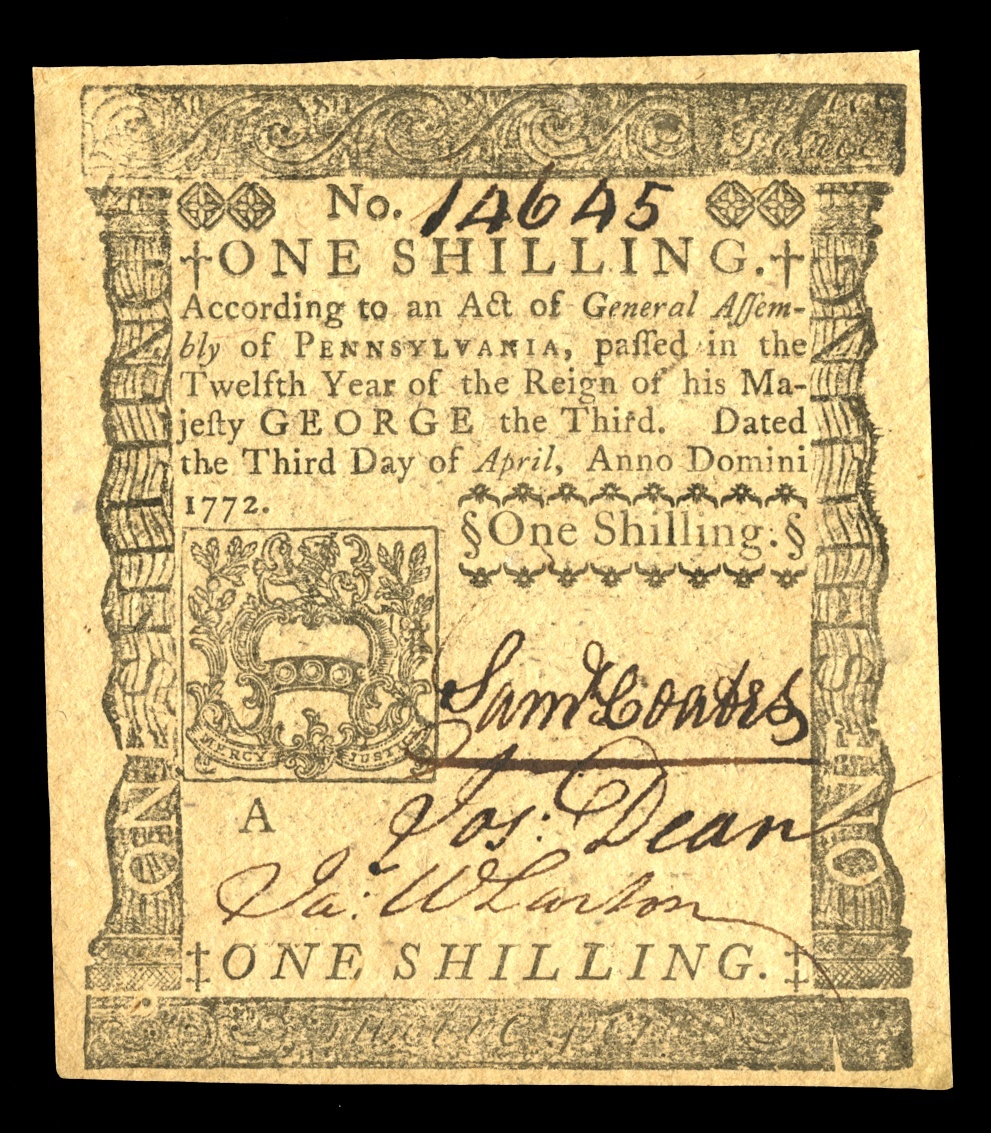 No. 14645
†ONE SHILLING.†
According to an Act of General Aſſem-
bly of PENNSYLVANIA, paſſed in the
Twelfth Year of the Reign of his Ma-
jeſty GEORGE the Third. Dated
the Third Day of April, Anno Domini
1772.
§One Shilling.§
MERCY JUSTICE
Saml Coates
Jos: Dean
A
Ja: Wharton
‡ONE SHILLING.‡
ONE SHILLING
ONE SHILLING